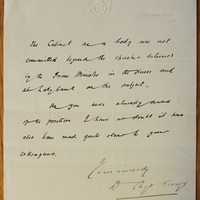 The Cabinet as a body are not
committed beyond the speeches delivered
by the Prime Minister in the House and
at Ladybank on this subject.
As you were already aware
of the position I have no doubt it has
also been made quite clear to your
colleagues.
Yours sincerely